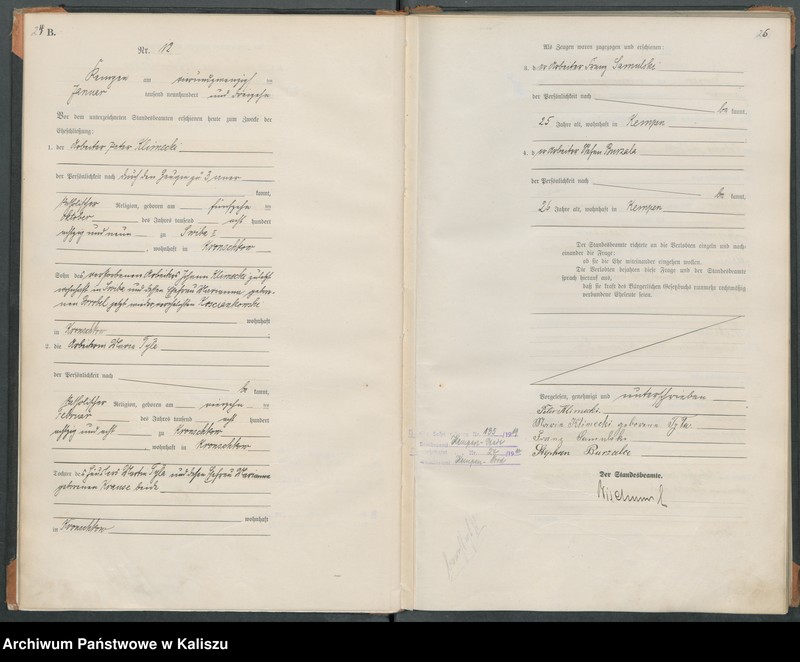 24 B.
Nr. 12
Kempen am neunundzwanzig ten
Januar tausend neunhundert und dreizehn
Vor dem unterzeichneten Standesbeamten erschienen heute zum Zwecke der
Eheschließung:
1. der Arbeiter Peter Klimecki
der Persönlichkeit nach durch den Zeugen zu 3, aner
kannt,
katholischer Religion, geboren am fünfzehn ten
Oktober des Jahres tausend acht hundert
achtzig und neun zu Swiba
, wohnhaft in
Sohn des verstorbenen Arbeiters Johann Klimecki, zuletzt
wohnhaft in Swiba und dessen Ehefrau Marianna gebor-
nen jetzt wiederverehelichten
wohnhaft
in
2. die Arbeiterin Maria Tyla
der Persönlichkeit nach
be kannt,
katholischer Religion, geboren am vierzehn ten
Februar des Jahres tausend acht hundert
achtzig und acht zu
, wohnhaft in
Tochter des Martin Tyla und dessen Ehefrau Marianna
geborenen Krause beide
wohnhaft
in
25
Als Zeugen waren zugezogen und erschienen:
3. der Arbeiter Franz Samulski
der Persönlichkeit nach
be kannt,
25 Jahre alt, wohnhaft in Kempen
4. der Arbeiter Stefan Burzala
der Persönlichkeit nach
be kannt,
26 Jahre alt, wohnhaft in Kempen
Der Standesbeamte richtete an die Verlobten einzeln und nach-
einander die Frage:
ob sie die Ehe miteinander eingehen wollen.
Die Verlobten bejahten diese Frage und der Standesbeamte
sprach hierauf aus,
daß sie kraft des Bürgerlichen Gesetzbuchs nunmehr rechtmäßig
verbundene Eheleute seien.
Vorgelesen, genehmigt und unterschrieben
Peter Klimecki.
Maria Klimecki geborene Tyla.
Franz Samulski
Stephan Burzala
Der Standesbeamte.
Archiwum Państwowe w Kaliszu